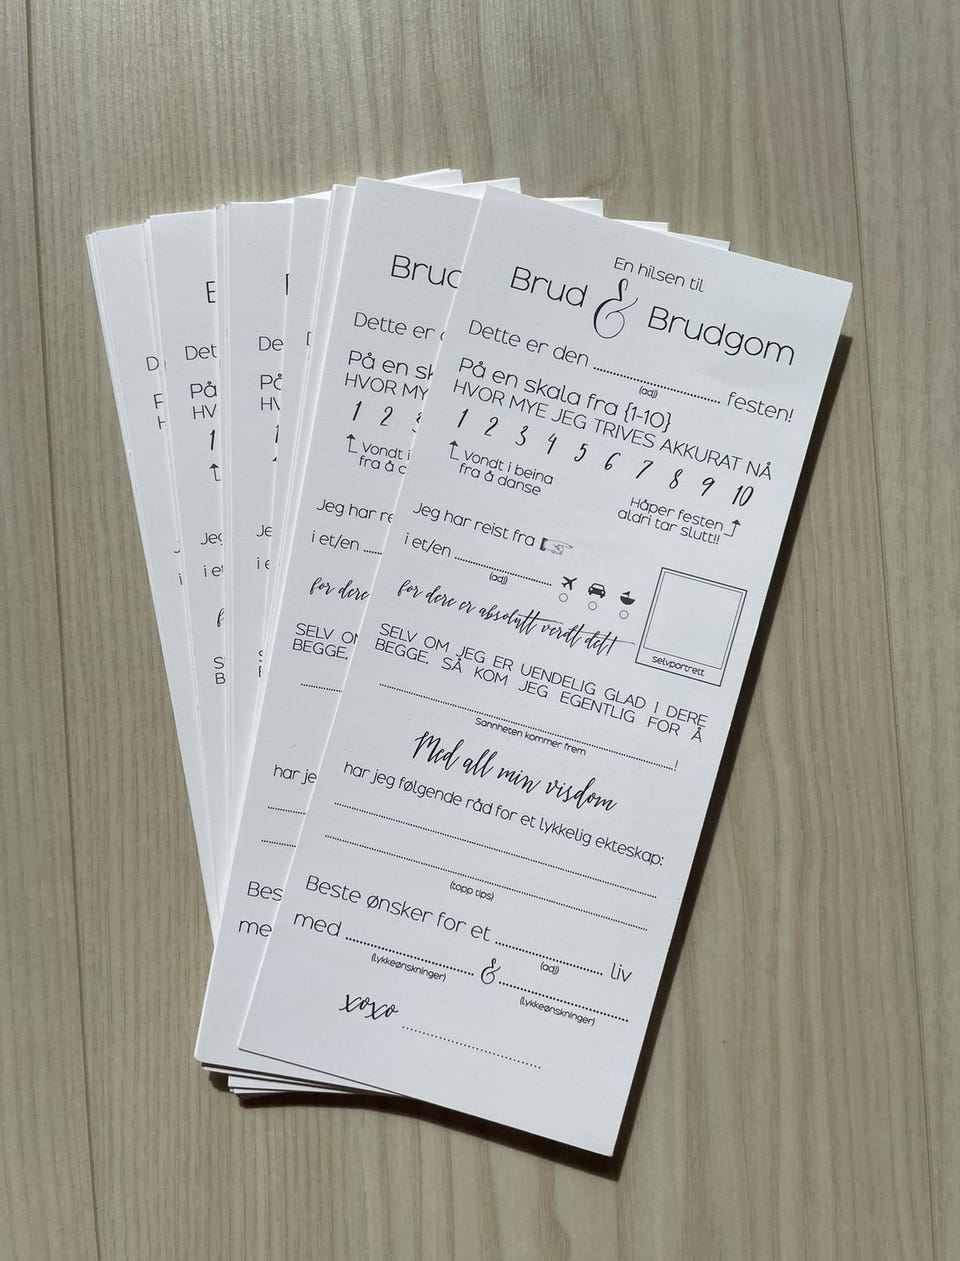 En hilsen til
Brud & Brudgom
Dette er den ........................ festen!
(adj)
På en skala fra {1-10}
HVOR MYE JEG TRIVES AKKURAT NÅ
1 2 3 4 5 6 7 8 9 10
vondt i beina
fra å danse
Håper festen
aldri tar slutt!!
Jeg har reist fra
i et/en ........................
(adj)
for dere er absolutt verdt det!
selvportrett
SELV OM JEG ER UENDELIG GLAD I DERE
BEGGE, SÅ KOM JEG EGENTLIG FOR Å
........................!
Sannheten kommer frem
Med all min visdom
har jeg følgende råd for et lykkelig ekteskap:
(topp tips)
Beste ønsker for et ........................ liv
(adj)
med ........................ & ........................
(lykkeønskninger)
(lykkeønskninger)
xoxo ........................
Brud
Dette er d
På en sk
HVOR MY
1 2 3
vondt i
fra å d
Jeg har re
i et/en ........
for dere
SELV OM
BEGGE,
har je
Bes
me